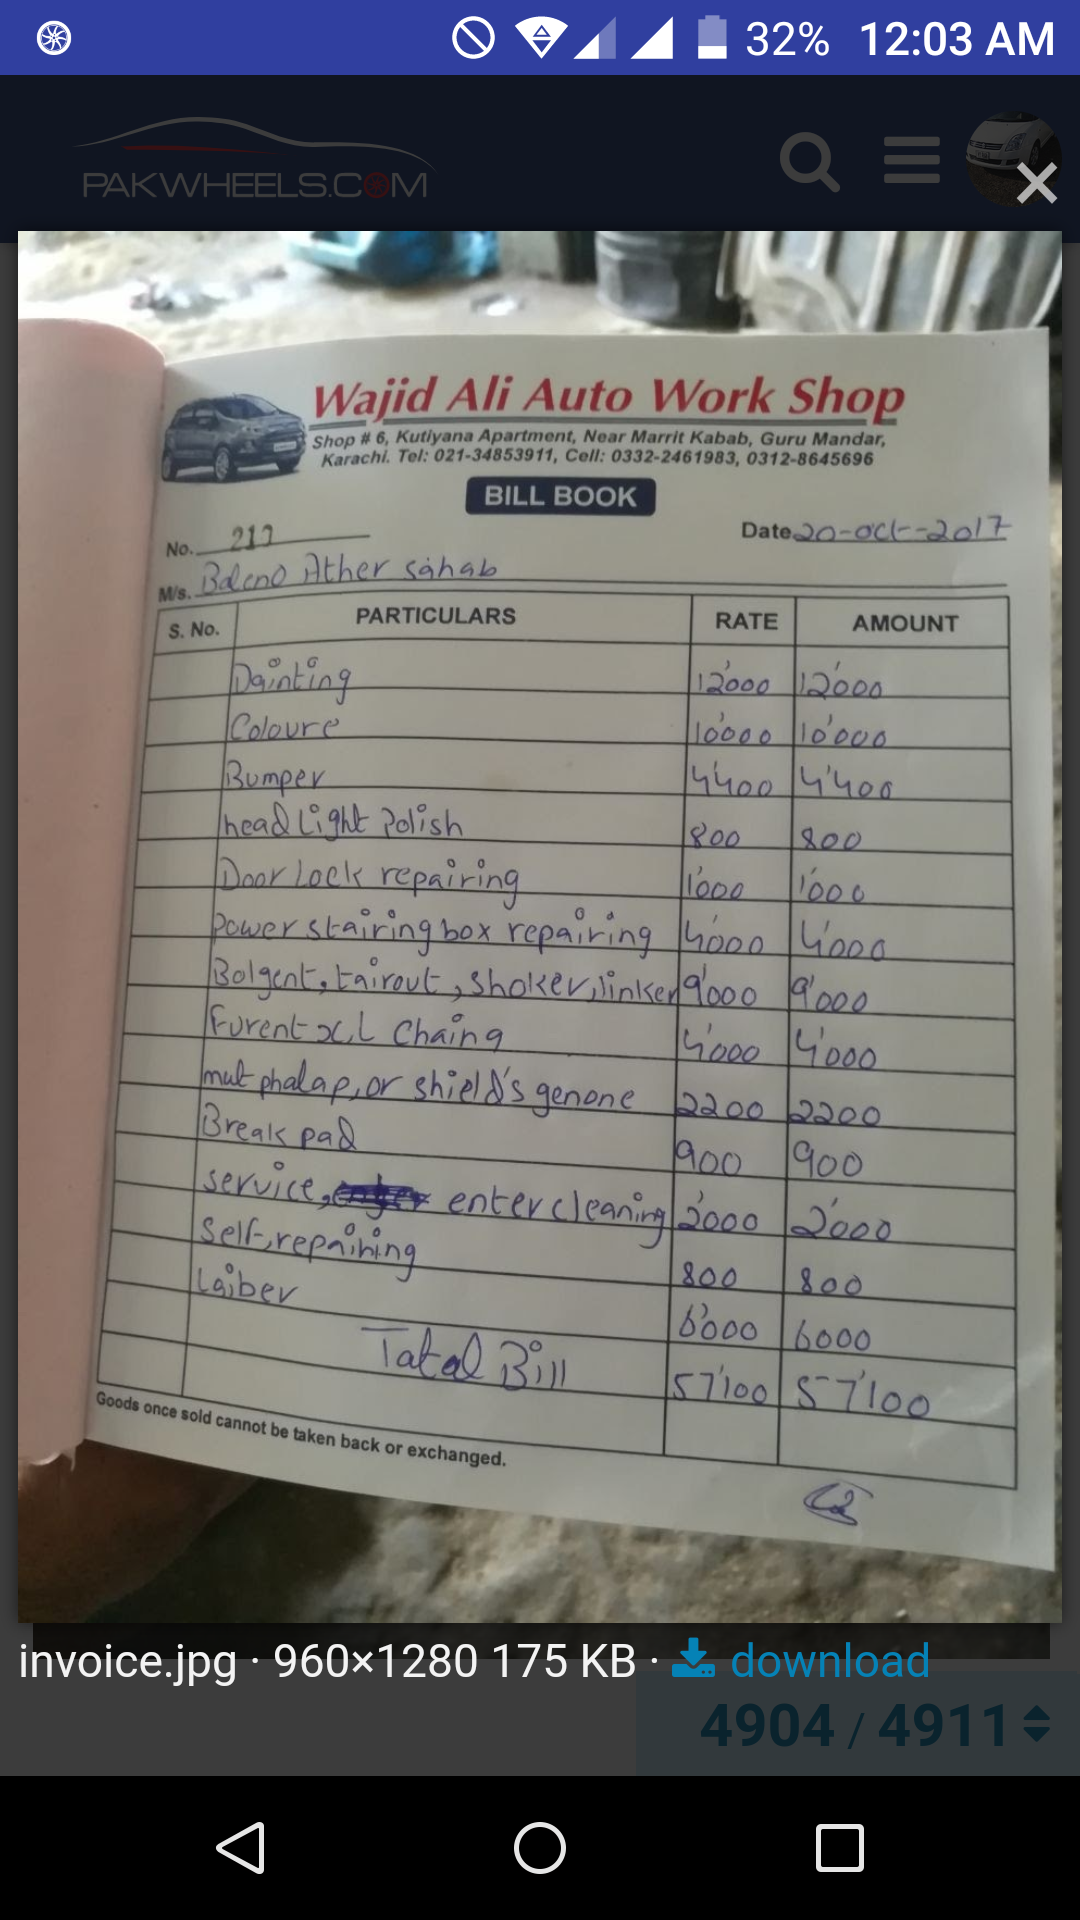 32% 12:03 AM
PAKWHEELS.COM
Wajid Ali Auto Work Shop
Shop # 6, Kutiyana Apartment, Near Marrit Kabab, Guru Mandar,
Karachi. Tel: 021-34853911, Cell: 0332-2461983, 0312-8645696
BILL BOOK
No. Date 20-oct-2017
M/s. Baleno Ather sahab
S. No. PARTICULARS RATE AMOUNT
Dainting 12'000 12'000
Coloure 10'000 10'000
Bumper 4'400 4'400
head Light Polish 800 800
Door Lock repairing 1'000 1'000
Power stairing box repairing 4'000 4'000
Bolgent, tairout, shoker, linker 9'000 9'000
Furent x.L Chaing 4'000 4'000
mut phalap, or shield's genone 2200 2200
Break pad 900 900
service, enter cleaning 2'000 2'000
Self, repairing 800 800
Laiber 6'000 6000
Tatal Bill 57'100 57'100
Goods once sold cannot be taken back or exchanged.
invoice.jpg · 960×1280 175 KB · download
4904 / 4911